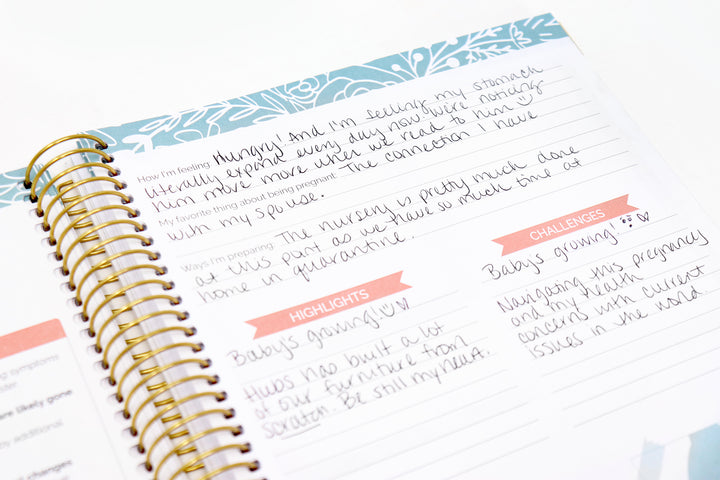 How I'm feeling Hungry! And I'm feeling my stomach
literally expand every day now & were noticing
him move more when we read to him
My favorite thing about being pregnant The connection I have
with my spouse.
Ways I'm preparing The nursery is pretty much done
at this point as we have so much time at
home in quarantine.
HIGHLIGHTS
Baby's growing!
Hubs has built a lot
of our furniture from
scratch. Be still my heart.
CHALLENGES
Baby's growing!
Navigating this pregnancy
and my health
concerns with current
issues in the world.
ng symptoms
der.
are likely gone
by additional
changes